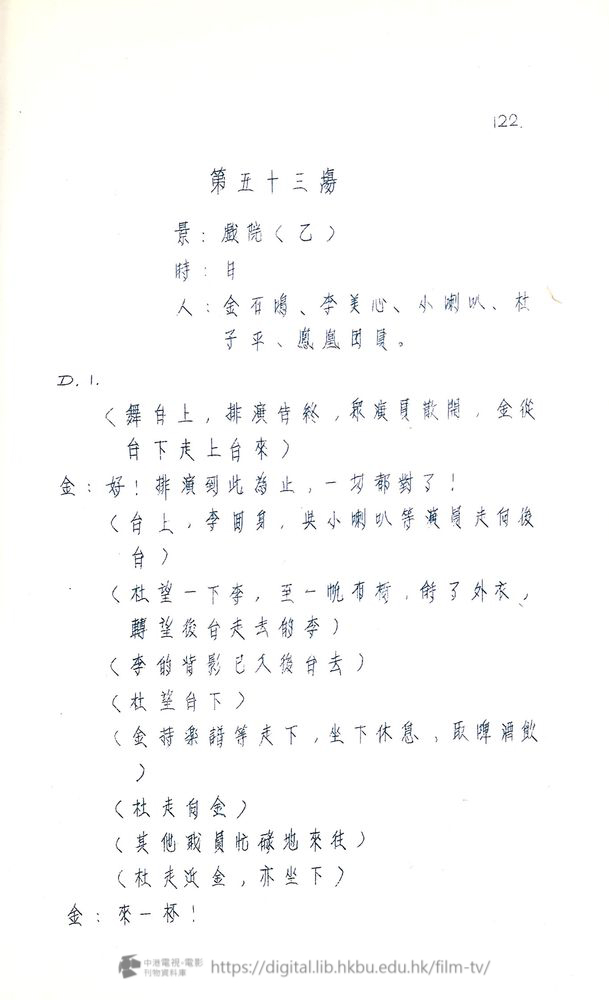 122.
第五十三場
景：戲院（乙）
時：日
人：金石鳴、李美心、小喇叭、杜
子平、鳳凰団員。
D. 1.
（舞台上，排演告終，眾演員散開，金從
台下走上台來）
金：好！排演到此為止，一切都對了！
（台上，李回身，與小喇叭等演員走向後
台）
（杜望一下李，至一帆布椅，解了外衣，
轉望後台走去的李）
（李的背影已入後台去）
（杜望台下）
（金持樂譜等走下，坐下休息，取啤酒飲
）
（杜走向金）
（其他戲員忙碌地來往）
（杜走近金，亦坐下）
金：來一杯！
中港電視·電影
刊物資料庫
https://digital.lib.hkbu.edu.hk/film-tv/